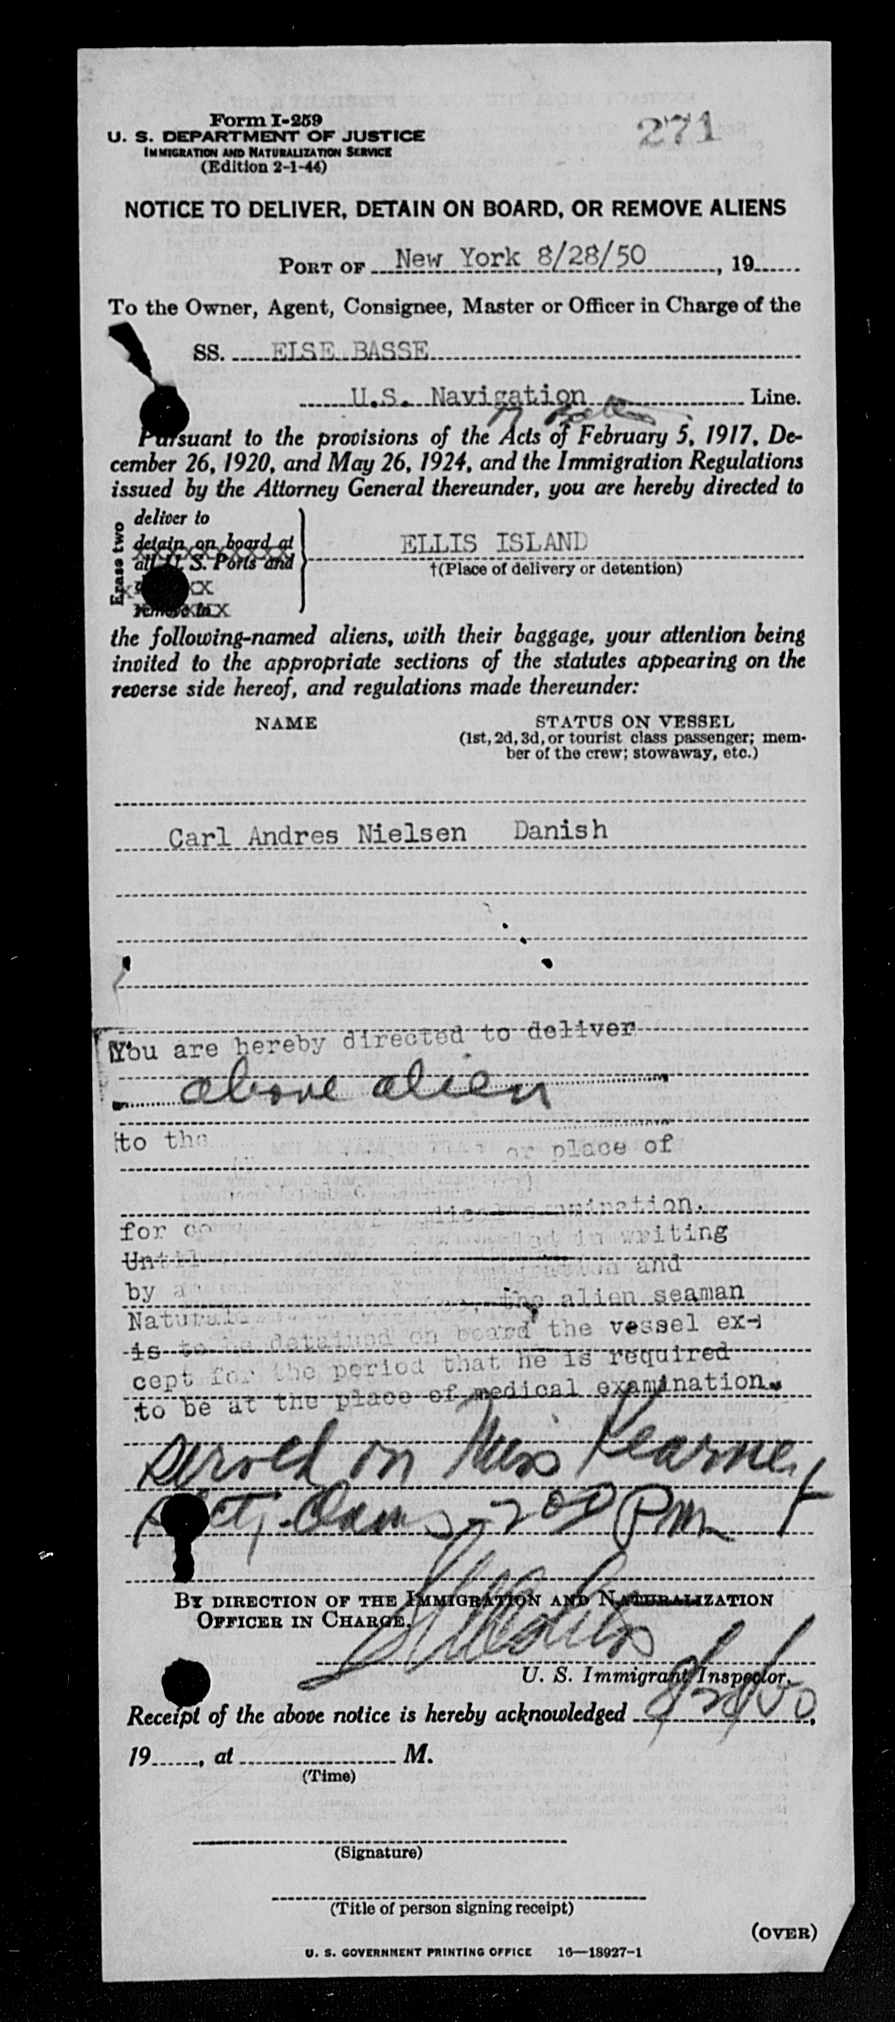 Form I-259
U. S. DEPARTMENT OF JUSTICE
IMMIGRATION AND NATURALIZATION SERVICE
(Edition 2-1-44)
271
NOTICE TO DELIVER, DETAIN ON BOARD, OR REMOVE ALIENS
PORT OF New York 8/28/50, 19
To the Owner, Agent, Consignee, Master or Officer in Charge of the
SS. ELSE BASSE
U.S. Navigation Line.
Pursuant to the provisions of the Acts of February 5, 1917, De-
cember 26, 1920, and May 26, 1924, and the Immigration Regulations
issued by the Attorney General thereunder, you are hereby directed to
Erase two
deliver to
detain on board at
all U. S. Ports and
remove to
ELLIS ISLAND
†(Place of delivery or detention)
the following-named aliens, with their baggage, your attention being
invited to the appropriate sections of the statutes appearing on the
reverse side hereof, and regulations made thereunder:
NAME
STATUS ON VESSEL
(1st, 2d, 3d, or tourist class passenger; mem-
ber of the crew; stowaway, etc.)
Carl Andres Nielsen Danish
You are hereby directed to deliver
above alien
to the or place of
for examination.
Until in writing
by and
the alien seaman
is to be detained on board the vessel ex-
cept for the period that he is required
to be at the place of medical examination.
Served on Miss Kearney
200 PM
BY DIRECTION OF THE IMMIGRATION AND NATURALIZATION
OFFICER IN CHARGE.
U. S. Immigrant Inspector.
Receipt of the above notice is hereby acknowledged
19, at M.
(Time)
(Signature)
(Title of person signing receipt)
(OVER)
U. S. GOVERNMENT PRINTING OFFICE 16—18927-1